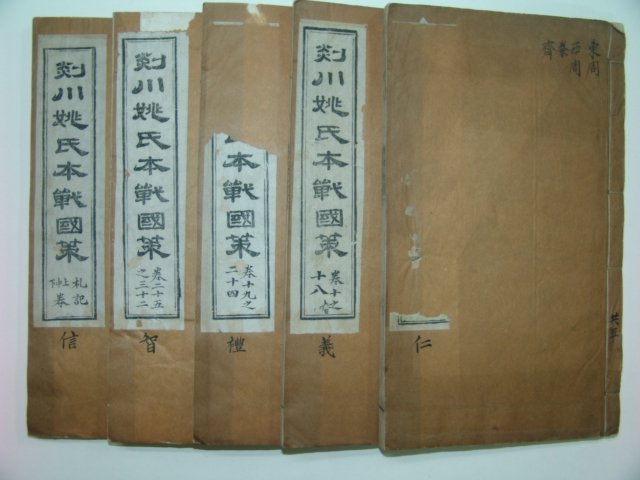 東周
西周
秦
齊
仁
剡川姚氏本戰國策
卷十之
十八
義
本戰國策
卷十九之
二十四
禮
剡川姚氏本戰國策
卷二十五
之三十二
智
剡川姚氏本戰國策
札記
上下卷
信